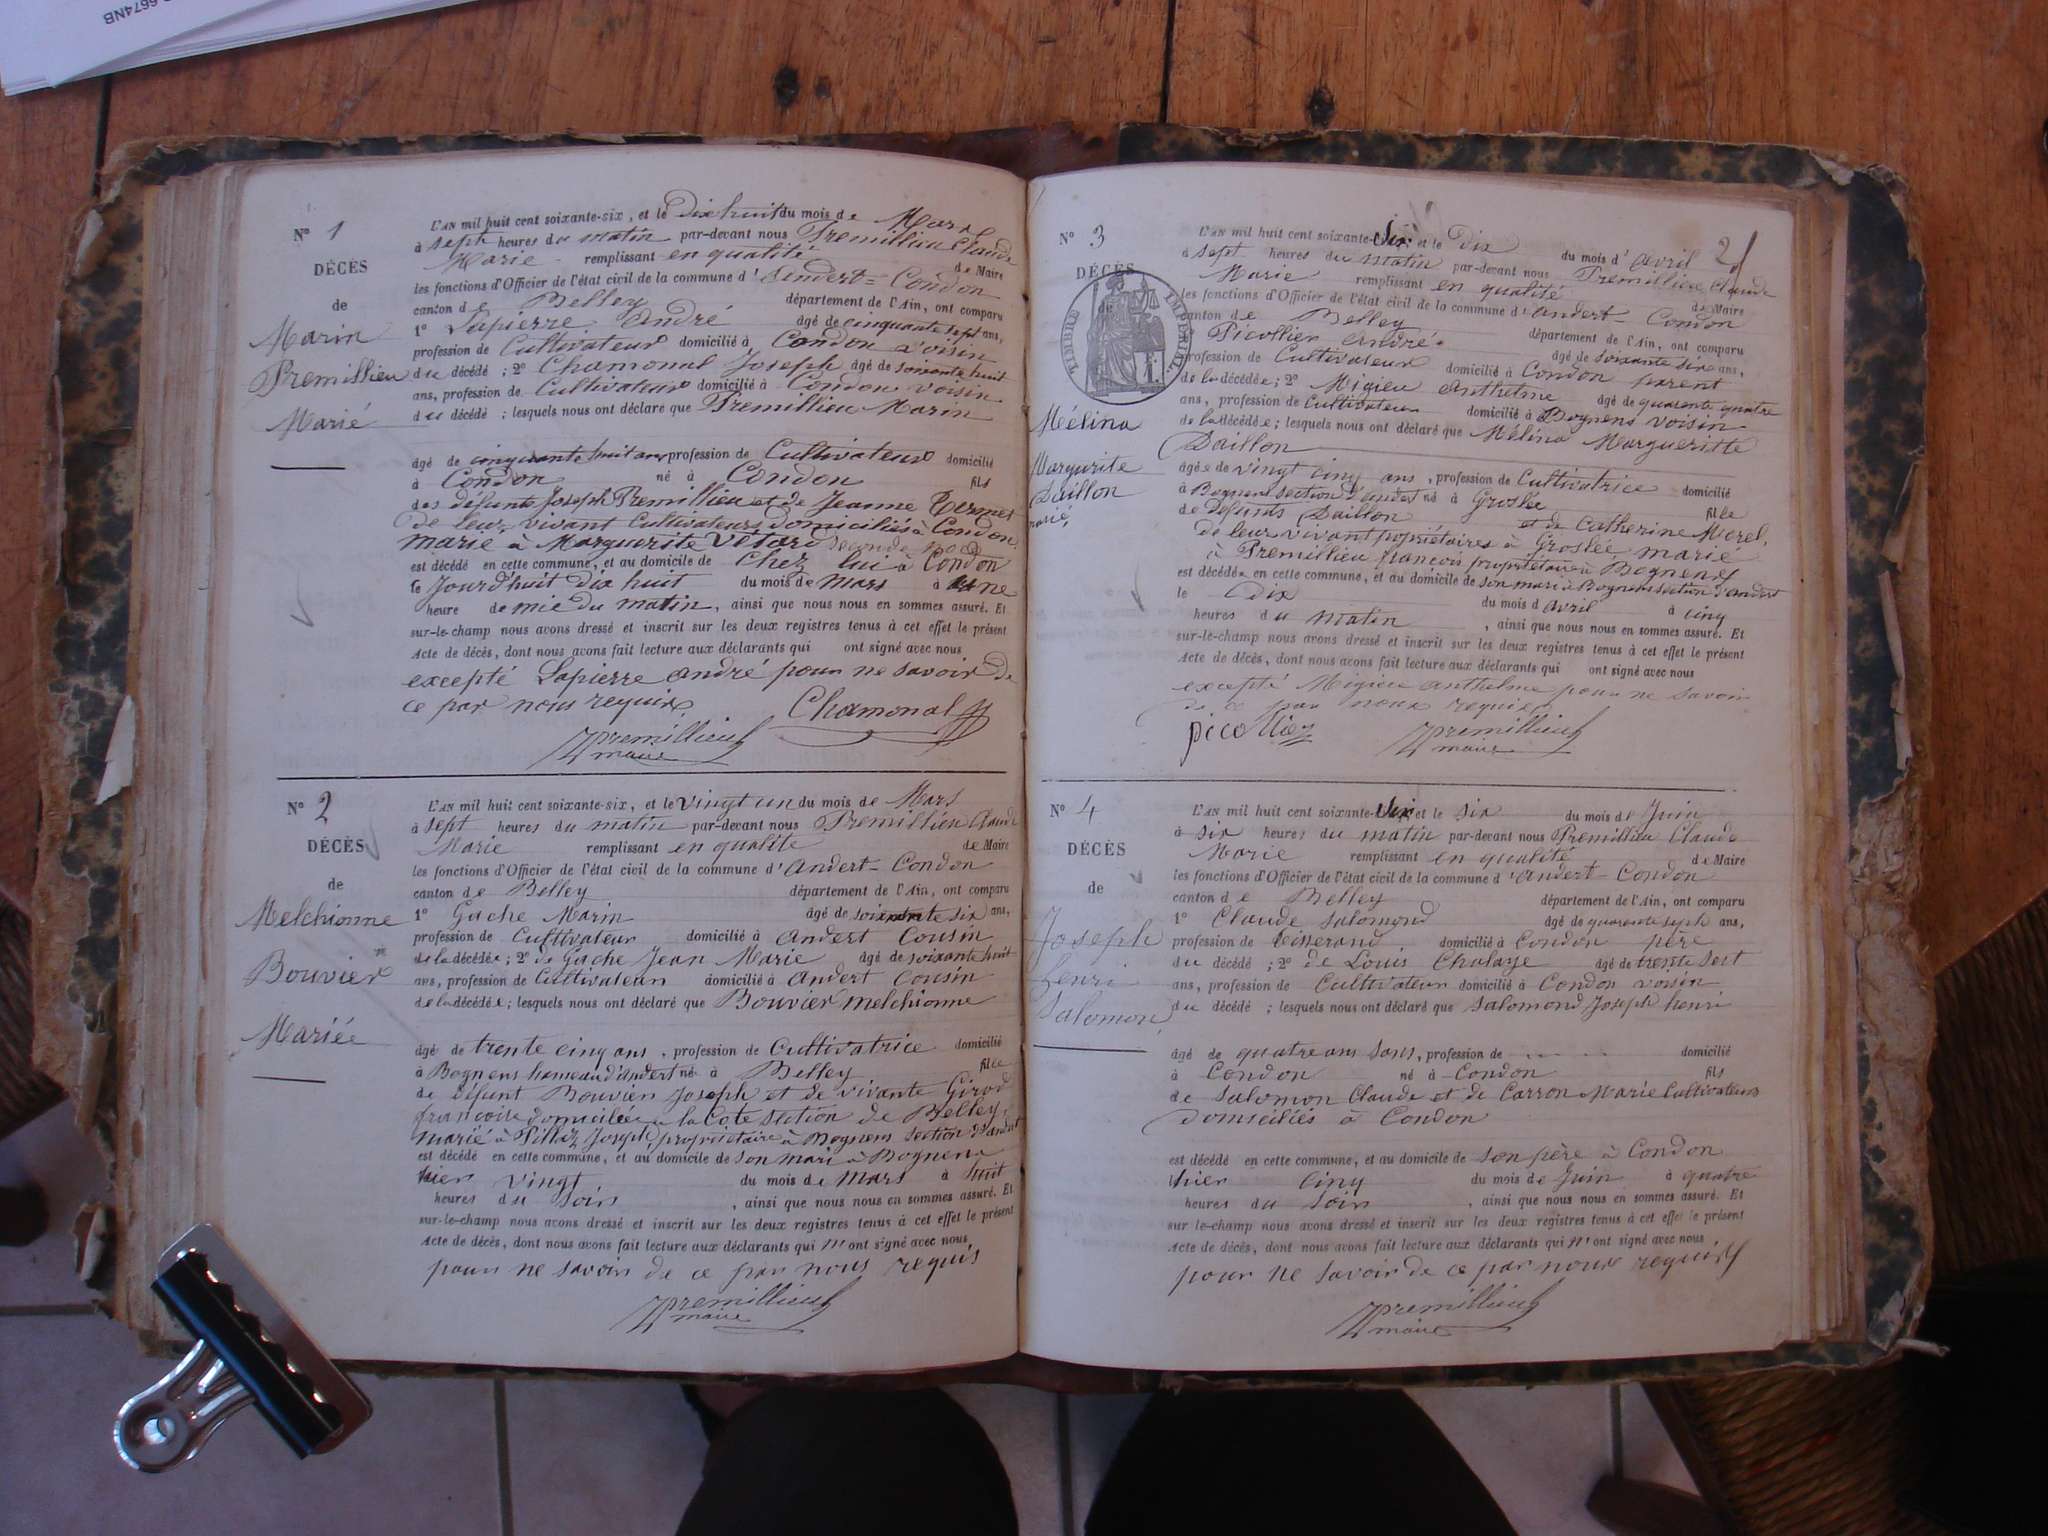 6674NB
N° 1
DÉCÈS
de
Marin
Premillieu
Marié
L'AN mil huit cent soixante-six, et le Dix huit du mois de Mars
à sept heures du matin par-devant nous Premillieu Claude
Marie remplissant en qualité de Maire
les fonctions d'Officier de l'état civil de la commune d'Andert-Condon
canton de Belley département de l'Ain, ont comparu
1° Lapierre André âgé de cinquante sept ans,
profession de Cultivateur domicilié à Condon voisin
du décédé ; 2° Chamonal Joseph âgé de soixante huit
ans, profession de Cultivateur domicilié à Condon voisin
du décédé ; lesquels nous ont déclaré que Premillieu Marin
âgé de cinquante huit ans profession de Cultivateur domicilié
à Condon né à Condon fils
des défunts Joseph Premillieu et de Jeanne
de leur vivant Cultivateurs domiciliés à Condon
marié à Marguerite Vetard
est décédé en cette commune, et au domicile de Chez lui à Condon
le Jourd'huit Dix huit du mois de Mars à une
heure de mie du matin, ainsi que nous nous en sommes assuré. Et
sur-le-champ nous avons dressé et inscrit sur les deux registres tenus à cet effet le présent
Acte de décès, dont nous avons fait lecture aux déclarants qui ont signé avec nous
excepté Lapierre André pour ne savoir de
ce par nous requis
Chamonal
premillieu
maire
N° 2
DÉCÈS
de
Melchionne
Bouvier
Mariée
L'AN mil huit cent soixante-six, et le vingt un du mois de Mars
à sept heures du matin par-devant nous Premillieu Claude
Marie remplissant en qualité de Maire
les fonctions d'Officier de l'état civil de la commune d'Andert-Condon
canton de Belley département de l'Ain, ont comparu
1° Gache Marin âgé de soixante six ans,
profession de Cultivateur domicilié à Andert Cousin
de la décédée ; 2° de Gache Jean Marie âgé de soixante huit
ans, profession de Cultivateur domicilié à Andert Cousin
de la décédée ; lesquels nous ont déclaré que Bouvier Melchionne
âgé de trente cinq ans, profession de Cultivatrice domicilié
à Bognens hameau d'Andert né à Belley fille
de défunt Bouvier Joseph et de vivante Girod
françoise domiciliée a la Cote section de Belley,
marié à Pillaz Joseph propriétaire à Bognens section d'andert
est décédé en cette commune, et au domicile de son mari à Bognens
hier vingt du mois de Mars à huit
heures du soir, ainsi que nous nous en sommes assuré. Et
sur-le-champ nous avons dressé et inscrit sur les deux registres tenus à cet effet le présent
Acte de décès, dont nous avons fait lecture aux déclarants qui n'ont signé avec nous
pour ne savoir de ce par nous requis
premillieu
maire
2
N° 3
DÉCÈS
de
TIMBRE IMPÉRIAL
Mélina
Margurite
Daillon
marié
L'AN mil huit cent soixante-six et le Dix du mois d'avril
à sept heures du matin par-devant nous Premillieu Claude
Marie remplissant en qualité de Maire
les fonctions d'Officier de l'état civil de la commune d'Andert-Condon
canton de Belley département de l'Ain, ont comparu
Picollier André âgé de soixante six ans,
profession de Cultivateur domicilié à Condon parent
de la décédée ; 2° Migieu Anthelme âgé de quarente quatre
ans, profession de Cultivateur domicilié à Bognens voisin
de la décédée ; lesquels nous ont déclaré que Mélina Margueritte
Daillon
âgée de vingt cinq ans, profession de Cultivatrice domicilié
à Bognens section d'andert né à Groslée fille
de Défunts Daillon et de Catherine Morel,
de leur vivant propriétaires à Groslée, marié
à Premillieu françois propriétaire à Bognens
est décédée en cette commune, et au domicile de son mari à Bognens section d'andert
le Dix du mois d avril à cinq
heures du matin, ainsi que nous nous en sommes assuré. Et
sur-le-champ nous avons dressé et inscrit sur les deux registres tenus à cet effet le présent
Acte de décès, dont nous avons fait lecture aux déclarants qui ont signé avec nous
excepté Migieu Anthelme pour ne savoir
de ce par nous requis
picollier
premillieu
maire
N° 4
DÉCÈS
de
Joseph
henri
Salomon
L'AN mil huit cent soixante-six et le six du mois de Juin
à six heures du matin par-devant nous Premillieu Claude
Marie remplissant en qualité de Maire
les fonctions d'Officier de l'état civil de la commune d'Andert-Condon
canton de Belley département de l'Ain, ont comparu
1° Claude Salomond âgé de quarente seph ans,
profession de tisserand domicilié à Condon père
du décédé ; 2° de Louis Chalaye âgé de trente sert
ans, profession de Cultivateur domicilié à Condon voisin
du décédé ; lesquels nous ont déclaré que Salomond Joseph henri
âgé de quatre ans sans, profession de domicilié
à Condon né à Condon fils
de Salomon Claude et de Carron Marie Cultivateurs
domiciliés à Condon
est décédé en cette commune, et au domicile de son père à Condon
hier cinq du mois de Juin à quatre
heures du soir, ainsi que nous nous en sommes assuré. Et
sur le-champ nous avons dressé et inscrit sur les deux registres tenus à cet effet le présent
Acte de décès, dont nous avons fait lecture aux déclarants qui n'ont signé avec nous
pour ne savoir de ce par nous requis
premillieu
maire